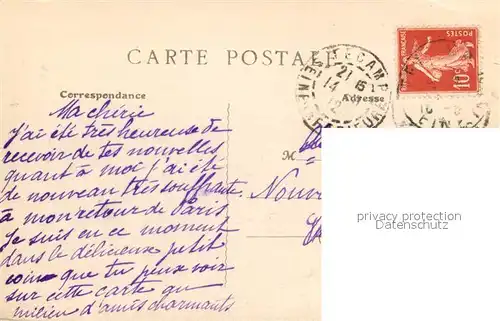 CARTE POSTALE
Correspondance
Adresse
FECAMP
21
14
POSTES
10c
Ma chérie
J'ai été très heureuse de
recevoir de tes nouvelles
quant à moi j'ai été
de nouveau très souffrante
à mon retour de Paris
Je suis en ce moment
dans le délicieux petit
coin que tu peux voir
sur cette carte au
milieu d'amis charmants
M
privacy protection
Datenschutz